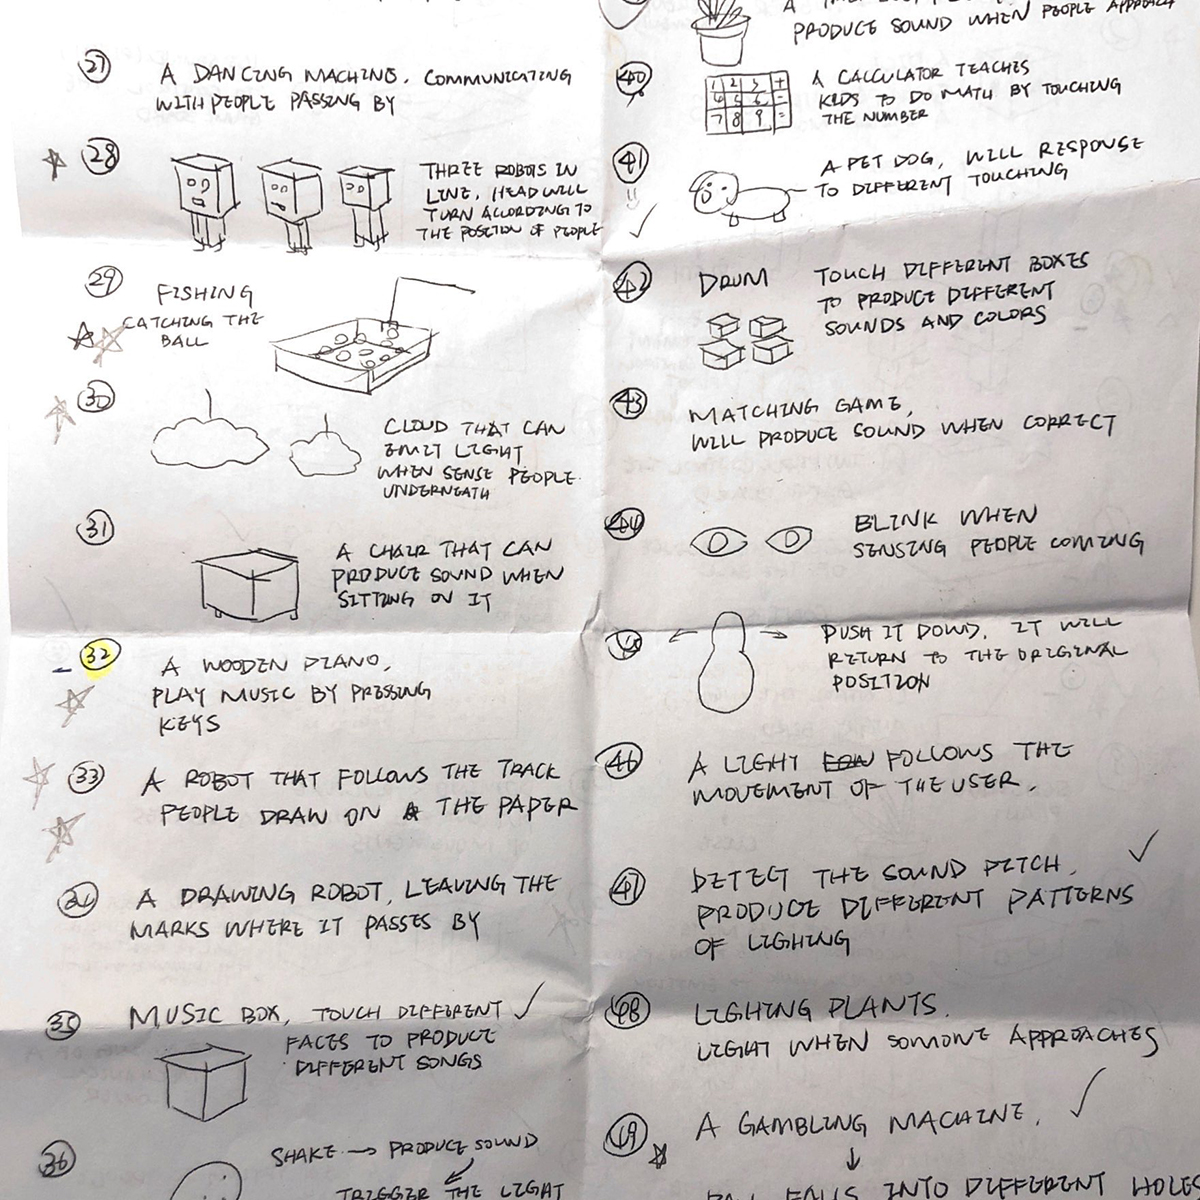 27
A DANCING MACHINE. COMMUNICATING
WITH PEOPLE PASSING BY
28
THREE ROBOTS IN
LINE, HEAD WILL
TURN ACCORDING TO
THE POSITION OF PEOPLE
29
FISHING
CATCHING THE
BALL
30
CLOUD THAT CAN
EMIT LIGHT
WHEN SENSE PEOPLE
UNDERNEATH
31
A CHAIR THAT CAN
PRODUCE SOUND WHEN
SITTING ON IT
32
A WOODEN PIANO,
PLAY MUSIC BY PRESSING
KEYS
33
A ROBOT THAT FOLLOWS THE TRACK
PEOPLE DRAW ON THE PAPER
34
A DRAWING ROBOT, LEAVING THE
MARKS WHERE IT PASSES BY
35
MUSIC BOX, TOUCH DIFFERENT
FACES TO PRODUCE
DIFFERENT SONGS
36
SHAKE → PRODUCE SOUND
TRIGGER THE LIGHT
PRODUCE SOUND WHEN PEOPLE APPROACH
40
1 2 3 +
7 8 9 =
A CALCULATOR TEACHES
KIDS TO DO MATH BY TOUCHING
THE NUMBER
41
A PET DOG, WILL RESPONSE
TO DIFFERENT TOUCHING
42
DRUM
TOUCH DIFFERENT BOXES
TO PRODUCE DIFFERENT
SOUNDS AND COLORS
43
MATCHING GAME,
WILL PRODUCE SOUND WHEN CORRECT
44
BLINK WHEN
SENSING PEOPLE COMING
45
PUSH IT DOWN, IT WILL
RETURN TO THE ORIGINAL
POSITION
46
A LIGHT FOLLOWS THE
MOVEMENT OF THE USER.
47
DETECT THE SOUND PITCH,
PRODUCE DIFFERENT PATTERNS
OF LIGHING
48
LIGHING PLANTS.
LIGHT WHEN SOMONE APPROACHES
49
A GAMBLING MACHINE.
↓
BALL FALLS INTO DIFFERENT HOLES